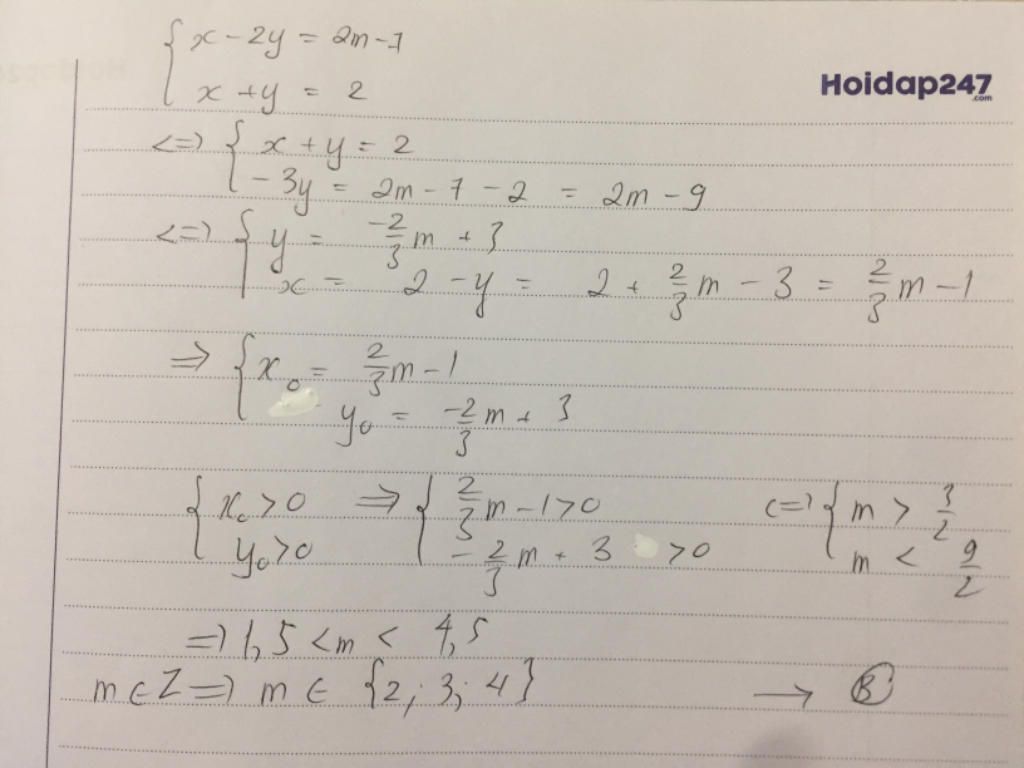 { x - 2y = 2m - 7
x + y = 2
Hoidap247
.com
<=> { x + y = 2
- 3y = 2m - 7 - 2 = 2m - 9
<=> { y = -2/3 m + 3
x = 2 - y = 2 + 2/3 m - 3 = 2/3 m - 1
=> { x₀ = 2/3 m - 1
y₀ = -2/3 m + 3
{ x₀ > 0 => { 2/3 m - 1 > 0 <=> { m > 3/2
y₀ > 0 - 2/3 m + 3 > 0 m < 9/2
=> 1,5 < m < 4,5
m ∈ Z => m ∈ {2; 3; 4} → B